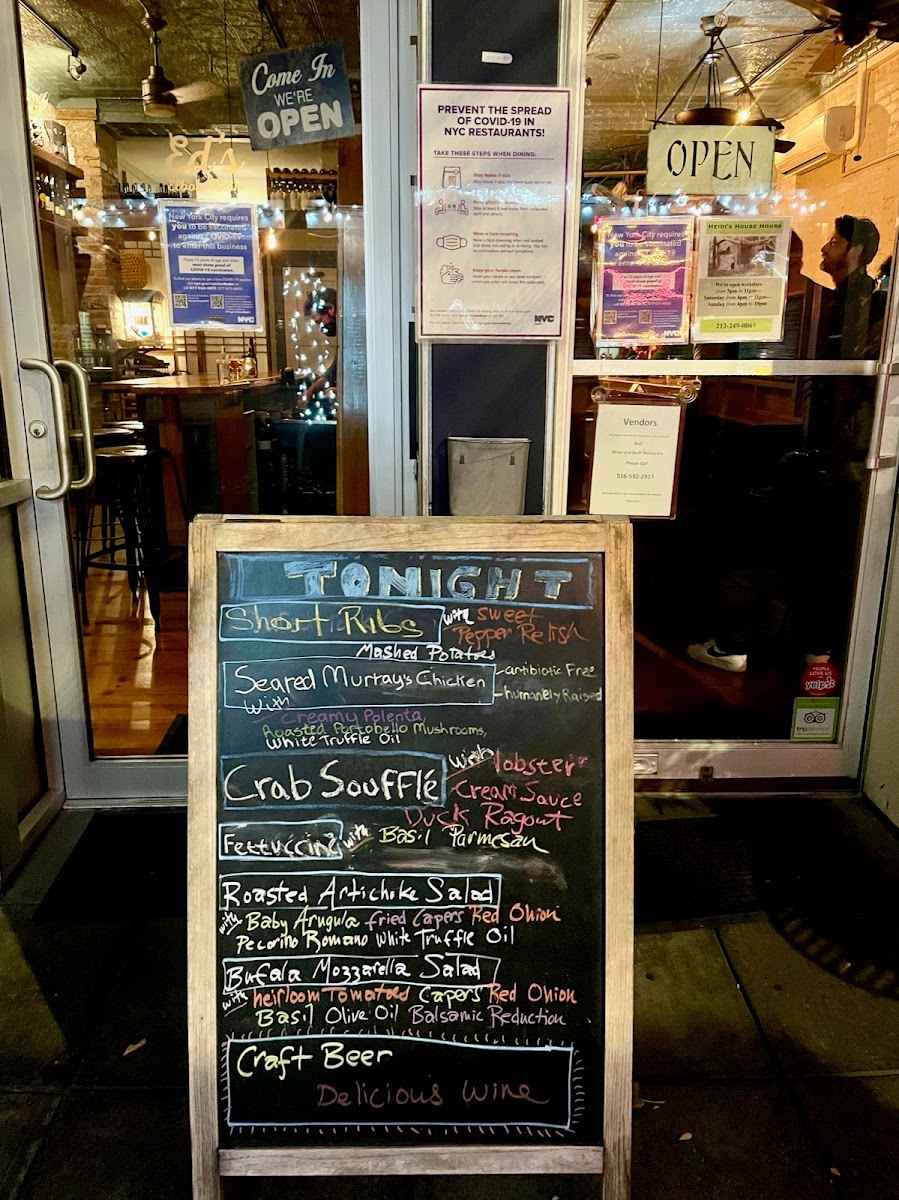 Come In
WE'RE
OPEN
Ed's
New York City requires
you to be vaccinated
against COVID-19
to enter this business
Those 12 years of age and older
must show proof of
COVID-19 vaccination
PREVENT THE SPREAD
OF COVID-19 IN
NYC RESTAURANTS!
TAKE THESE STEPS WHEN DINING:
Stay home if sick
Wear a face covering
Keep your hands clean
NYC
OPEN
New York City requires
you to be vaccinated
against COVID-19
NYC
HEIDI'S HOUSE HOURS
We're open weekdays
from 5pm to 11pm
Saturday from 4pm to 11pm
Sunday from 4pm to 10pm
212-249-0069
Vendors
And
Wine and Beer Deliveries
Please Call
516-532-2917
PEOPLE
LOVE US
yelp
TONIGHT
Short Ribs with Sweet
Pepper Relish
Mashed Potatoes
Seared Murray's Chicken - antibiotic Free
- humanely Raised
With
- Creamy Polenta,
Roasted Portobello Mushrooms,
White Truffle Oil
Crab Soufflé with lobster
Cream Sauce
Duck Ragout
Fettuccine with Basil Parmesan
Roasted Artichoke Salad
with Baby Arugula fried Capers Red Onion
Pecorino Romano White Truffle Oil
Bufala Mozzarella Salad
with heirloom Tomatoes Capers Red Onion
Basil Olive Oil Balsamic Reduction
Craft Beer
Delicious Wine